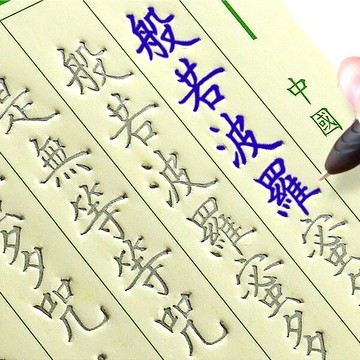 中國
般若波羅蜜多
般若波羅蜜多
是無等等咒
多咒